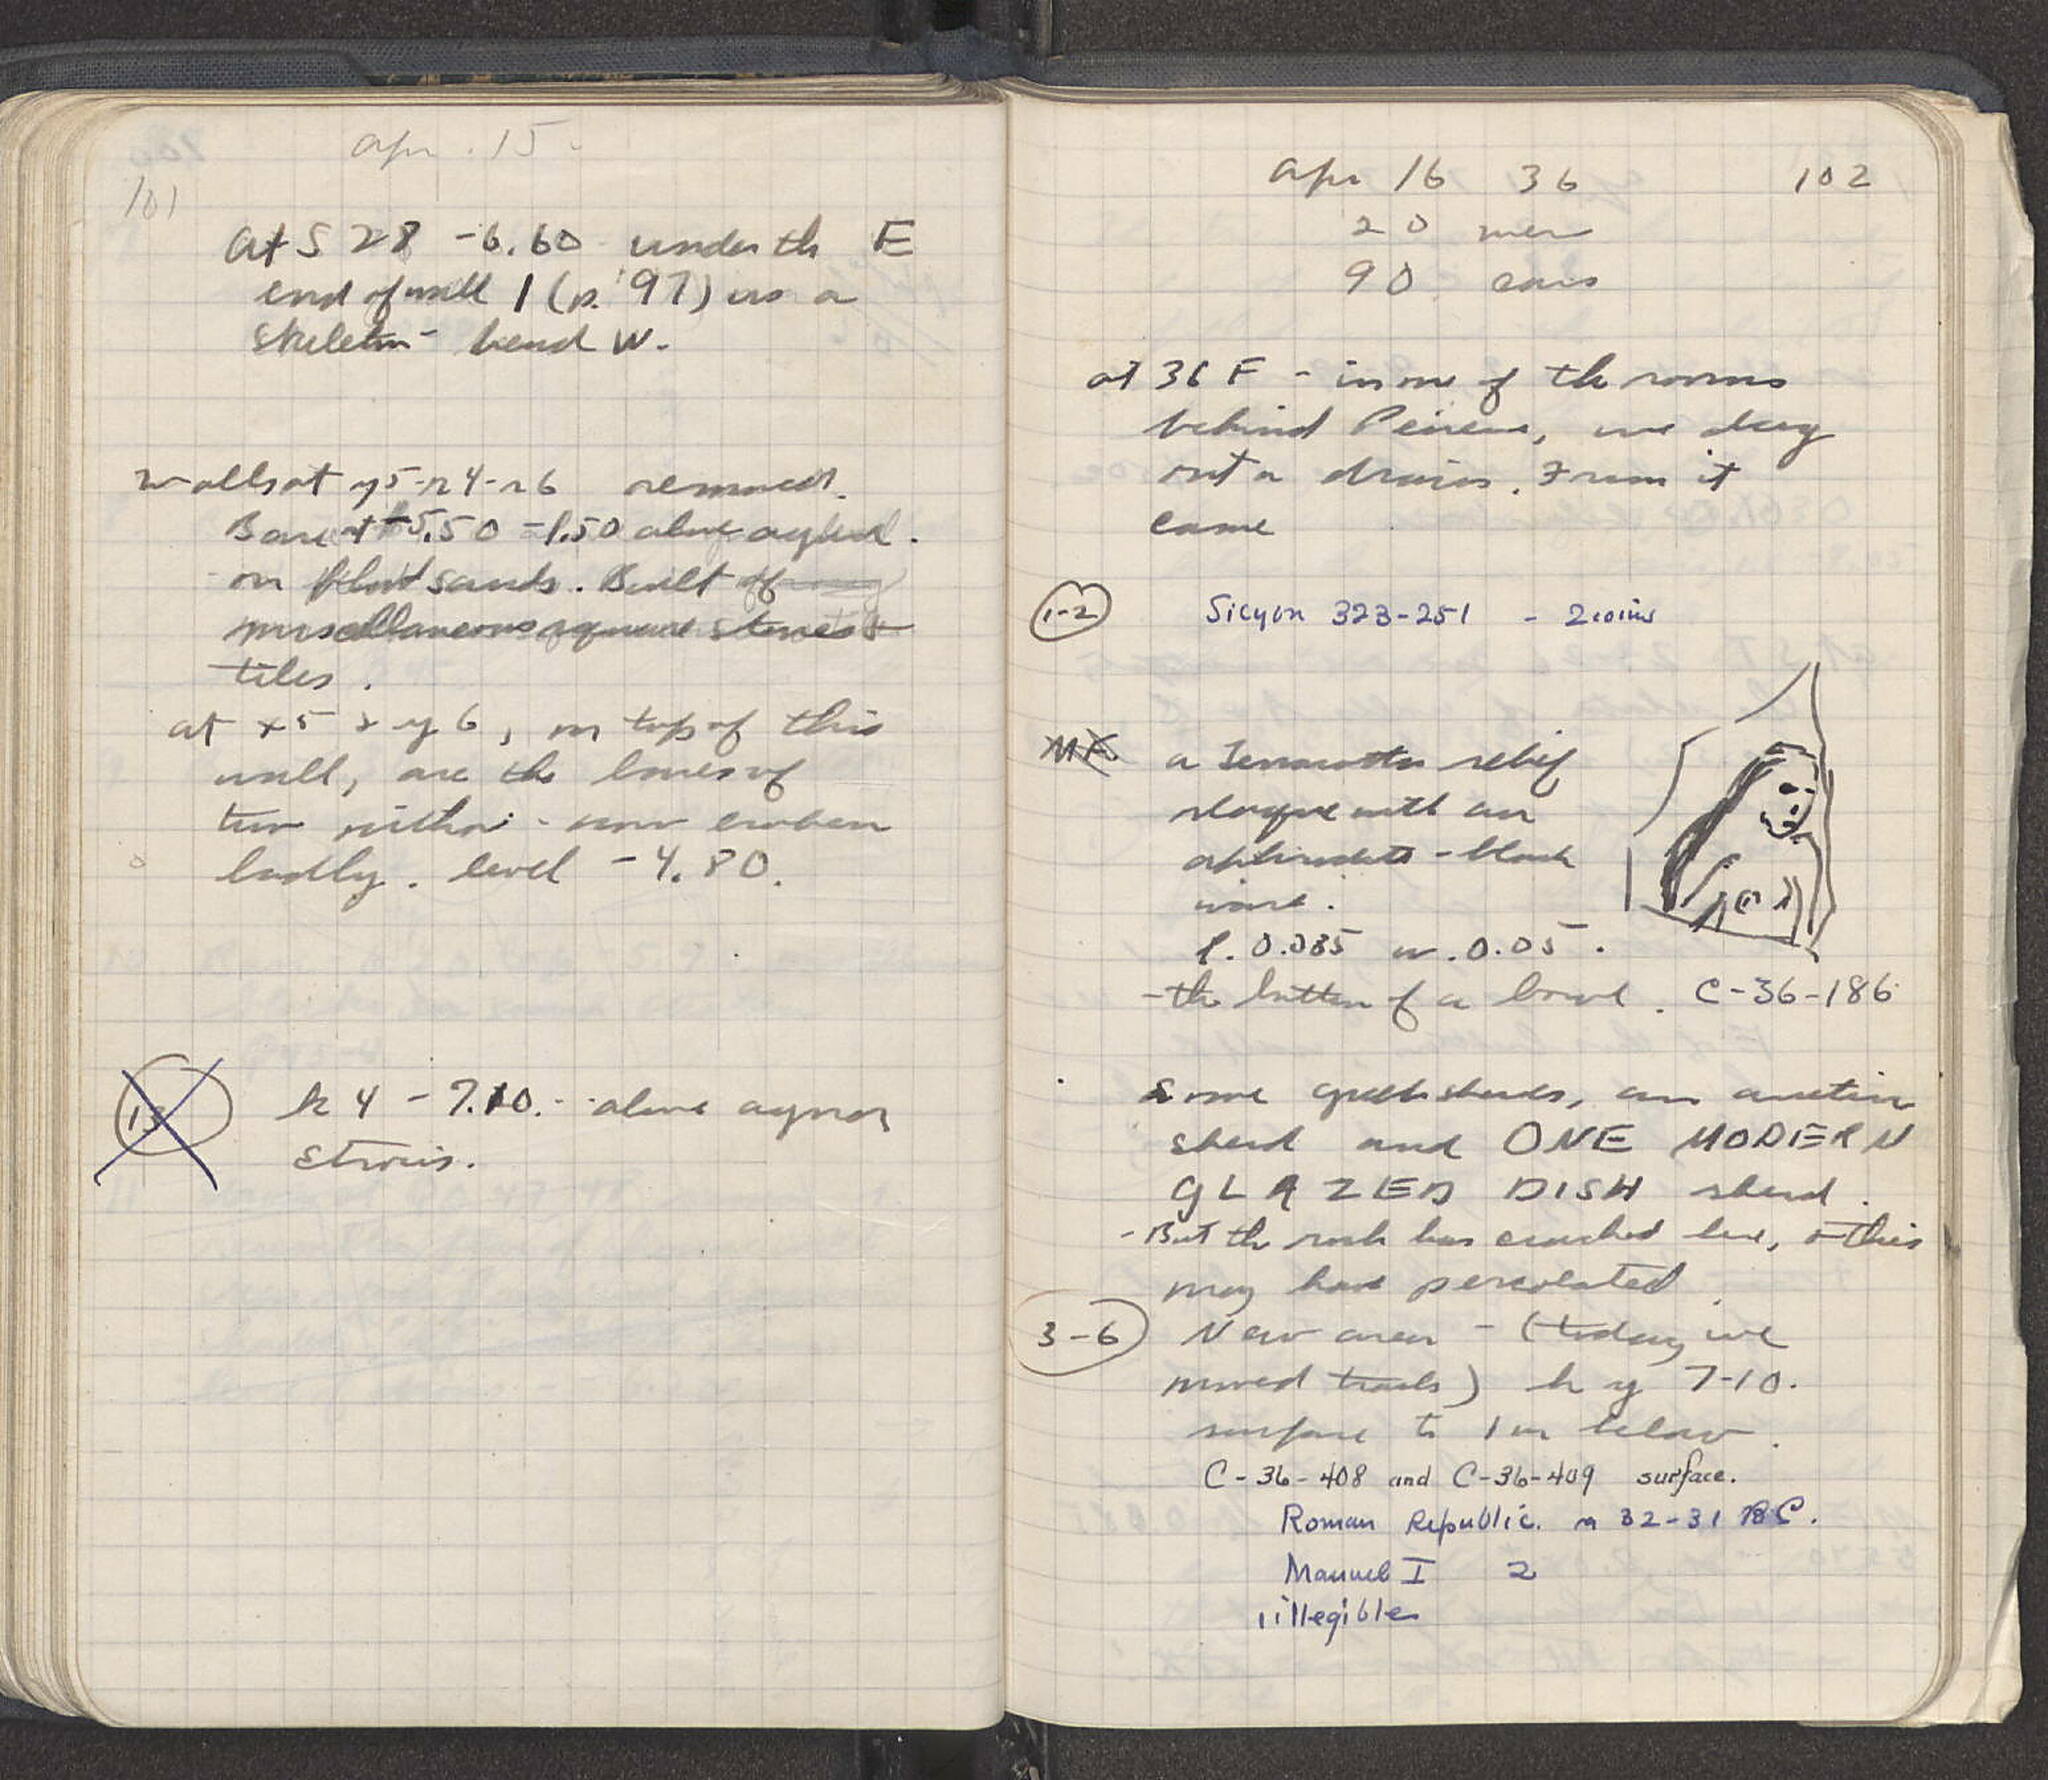 Apr. 15
101
At S 28 -6.60 under the E
end of wall 1 (p. 97) is a
skeleton - head W.
Walls at removed.
Base at -5.50 = 1.50 above
on sands. Built of
miscellaneous square stones &
tiles.
at x5 y6, on top of this
wall, are the bases of
two - now broken
badly. level -4.80.
13
k 4 - 7.10. - above agora
stroses.
Apr 16 36
102
20 men
90 cars
at 36 F - in one of the rooms
behind Peirene, we dug
out a drain. From it
came
1-2
Sicyon 323-251 - 2 coins
MF
a Terracotta relief
plaque with an
aphrodite - black
ware.
l. 0.085 w. 0.05.
- the bottom of a bowl. C-36-186
Some greek sherds, an arretine
sherd and ONE MODERN
GLAZED DISH sherd.
- But the rock has crashed here, & this
may have percolated.
3-6
New area - (today we
moved tracks) 7-10.
surface to 1 m below.
C-36-408 and C-36-409 surface.
Roman Republic. 32-31 BC.
Manuel I 2
1 illegible